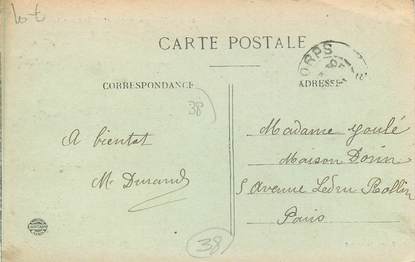 Lot
CARTE POSTALE
ORPS
CORRESPONDANCE
ADRESSE
38
A bientot
M. Durand
Madame Goulé
Maison Dorin
5 Avenue Ledru Rollin
Paris
38